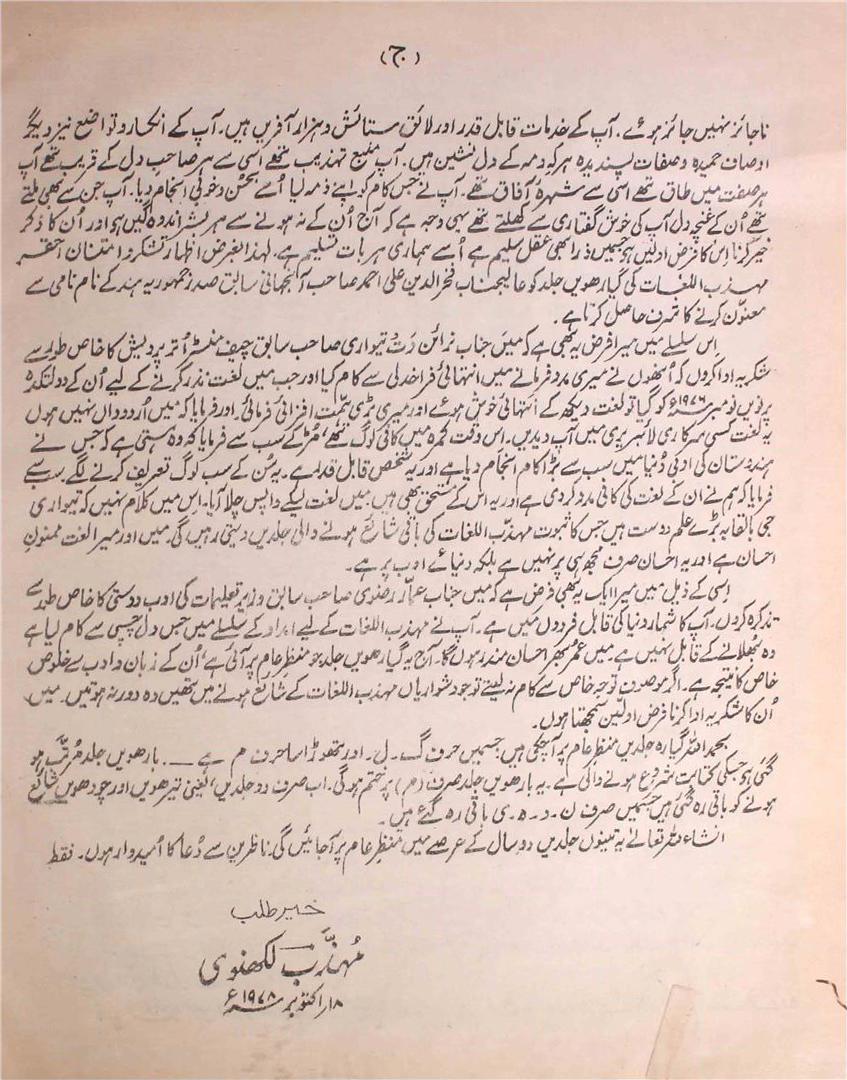 (ج)
ناجائز نہیں جائز ہوئے۔ آپ کے خدمات قابل قدر اور لائق ستائش و ہزار آفریں ہیں۔ آپ کے انکسار و تواضع نیز دیگر
اوصاف حمیدہ و صفات پسندیدہ ہر کہ ومہ کے دل نشین ہیں۔ آپ منبع تہذیب تھے اسی سے ہر صاحب دل کے قریب تھے آپ
ہر صفت میں طاق تھے اسی سے شہرۂ آفاق تھے۔ آپ نے جس کام کو اپنے ذمہ لیا اُسے بحسن و خوبی انجام دیا۔ آپ جن سے بھی ملتے
تھے اُن کے غنچہ دل آپ کی خوش گفتاری سے کھلتے تھے یہی وجہ ہے کہ آج اُن کے نہ ہونے سے ہر بشر اندوہگیں ہے اور اُن کا ذکر
خیر کرنا اِس کا فرض اولیں ہے جسمیں ذرا بھی عقل سلیم ہے اُسے ہماری ہر بات تسلیم ہے۔ لہٰذا بغرض اظہار تشکر و امتنان احقر
مہذب اللغات کی گیارھویں جلد کو عالیجناب فخرالدین علی احمد صاحب آنجہانی سابق صدر جمہوریہ ہند کے نام نامی سے
معنون کرنے کا شرف حاصل کرتا ہے۔
اس سلسلے میں میرا فرض یہ بھی ہے کہ میں جناب نرائن دَتْ تیواری صاحب سابق چیف منسٹر اُتر پردیش کا خاص طور سے
شکریہ ادا کروں کہ اُنھوں نے میری مدد فرمانے میں انتہائی فراخدلی سے کام لیا اور جب میں لغت نذر کرنے کے لیے اُن کے دولتکدہ
پر نومبر ۱۹۷۶ء کو گیا تو لغت دیکھ کے انتہائی خوش ہوئے اور میری بڑی ہمّت افزائی فرمائی۔ اور فرمایا کہ میں اُردوداں نہیں ہوں
یہ لغت کسی سرکاری لائبریری میں آپ دیدیں۔ اس وقت کمرہ میں کافی لوگ تھے، مُڑ کے سب سے فرمایا کہ وہ ہستی ہے کہ جس نے
ہندوستان کی ادبی دُنیا میں سب سے بڑا کام انجام دیا ہے اور یہ شخص قابل قدر ہے۔ یہ سُن کے سب لوگ تعریف کرنے لگے۔ سب سے
فرمایا کہ ہم نے ان کے لغت کی کافی مدد کر دی ہے اور یہ اس کے مستحق بھی ہیں۔ میں لغت لیکے واپس چلا آیا۔ اِس میں کلام نہیں کہ تیواری
جی بالقابہ بڑے علم دوست ہیں جس کا ثبوت مہذب اللغات کی باقی شائع ہونے والی جلدیں دیتی رہیں گی۔ میں اور میرا لغت ممنونِ
احسان ہے اور یہ احسان صرف مجھ ہی پر نہیں ہے بلکہ دنیائے ادب پر ہے۔
اِسی کے ذیل میں میرا ایک یہ بھی فرض ہے کہ میں جناب عمّار رضوی صاحب سابق وزیر تعلیمات کی ادب دوستی کا خاص طور سے
تذکرہ کروں۔ آپ کا شمار دنیا کی قابل فردوں میں ہے۔ آپ نے مہذب اللغات کے لیے امداد کے سلسلے میں جس دل چسپی سے کام لیا ہے
وہ بھلانے کے قابل نہیں ہے میں عمر بھر احسان مند رہوں گا۔ آج یہ گیارھویں جلد جو منظر عام پر آئی ہے، اُن کے زبان و ادب سے خلوص
خاص کا نتیجہ ہے۔ اگر موصوف توجہ خاص سے کام نہ لیتے تو جو دشواریاں مہذب اللغات کے شائع ہونے میں تھیں وہ دور نہ ہوتیں۔ میں
اُن کا شکریہ ادا کرنا فرض اولین سمجھتا ہوں۔
بحمداللہ گیارہ جلدیں منظر عام پر آچکی ہیں جسمیں حرف گ۔ ل۔ اور تھوڑا سا حرف م ہے ۔ بارھویں جلد مُرتب ہو
گئی ہے جسکی کتابت شروع ہونے والی ہے۔ یہ بارھویں جلد صرف (م) پر ختم ہوگی۔ اب صرف دو جلدیں، یعنی تیرھویں اور چودھویں شائع
ہونے کو باقی رہ گئی ہیں جسمیں صرف ن۔ و۔ ہ۔ ی باقی رہ گئے ہیں۔
انشاء اللہ تعالےٰ یہ تینوں جلدیں دو سال کے عرصے میں منظر عام پر آجائیں گی۔ ناظرین سے دُعا کا اُمیدوار ہوں۔ فقط
خیر طلب
مُہذّب لکھنوی
۱۸ اکتوبر ۱۹۷۸ء